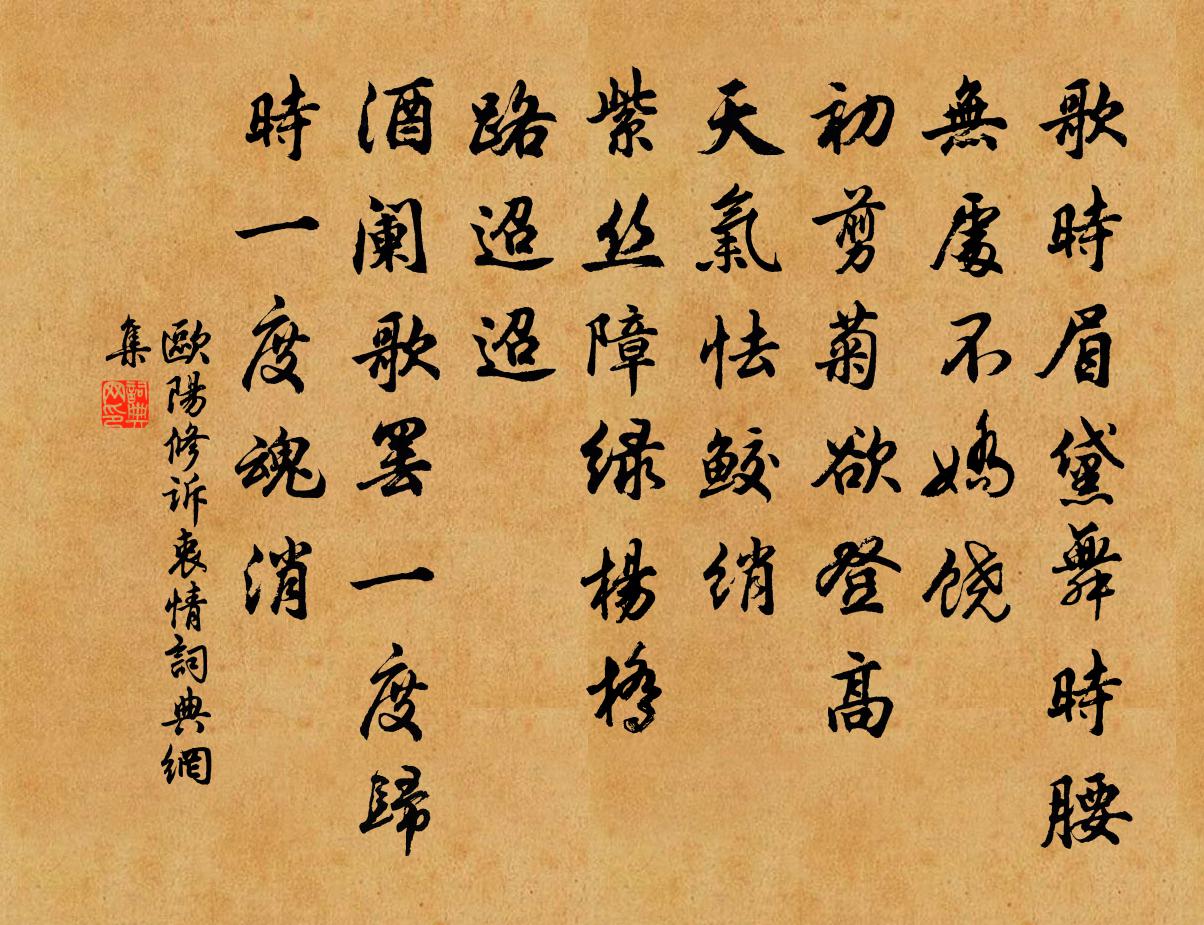 歌時眉黛舞時腰
無處不嬌饒
初剪菊欲登高
天氣怯鮫綃
紫丝障绿楊橋
路迢迢
酒阑歌罢一度歸
時一度魂消
歐陽修诉衷情詞典網
集
詞典网印